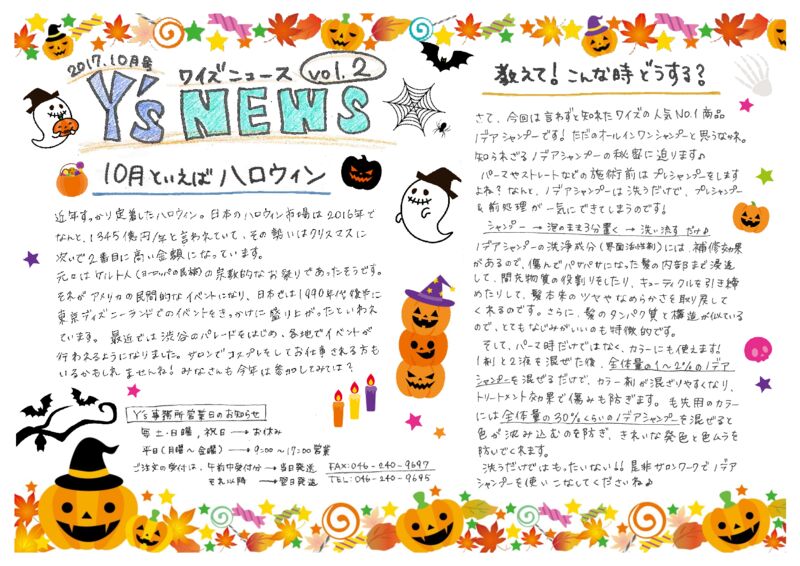 2017.10月号
Y's NEWS
ワイズニュース
vol.2
10月といえばハロウィン
近年すっかり定着したハロウィン。日本のハロウィン市場は2016年で
なんと、1345億円/年と言われていて、その勢いはクリスマスに
次いで2番目に高い金額になっています。
元々はケルト人(ヨーロッパの民族)の宗教的なお祭りであったそうです。
それがアメリカの民間的なイベントになり、日本では1990年代後半に
東京ディズニーランドでのイベントをきっかけに盛り上がったといわれ
ています。最近では渋谷のパレードをはじめ、各地でイベントが
行われるようになりました。サロンでコスプレをしてお仕事される方も
いるかもしれませんね!みなさんも今年は参加してみては?
Y's事務所営業日のお知らせ
毎土・日曜,祝日→お休み
平日(月曜〜金曜)→9:00〜17:00営業
ご注文の受付は、午前中受付分→当日発送
それ以降→翌日発送
FAX:046-240-9697
TEL:046-240-9695
教えて!こんな時どうする?
さて、今回は言わずと知れたワイズの人気NO.1商品
ノデアシャンプーです!ただのオールインワンシャンプーと思うなかれ。
知られざるノデアシャンプーの秘密に迫ります♪
パーマやストレートなどの施術前はプレシャンプーをします
よね?なんと、ノデアシャンプーは洗うだけで、プレシャンプー
&前処理が一気にできてしまうのです!
シャンプー→泡のまま3分置く→洗い流すだけ♪
ノデアシャンプーの洗浄成分(界面活性剤)には、補修効果
があるので、傷んでパサパサになった髪の内部まで浸透
して、間充物質の役割りをしたり、キューティクルを引き締
めたりして、髪本来のツヤやなめらかさを取り戻して
くれるのです。さらに、髪のタンパク質と構造が似ている
ので、とてもなじみがいいのも特徴的です。
そして、パーマ時だけではなく、カラーにも使えます!
1剤と2液を混ぜた後、全体量の1〜2%のノデア
シャンプーを混ぜるだけで、カラー剤が混ざりやすくなり、
トリートメント効果で傷みも防ぎます。毛先用のカラー
には全体量の30%くらいのノデアシャンプーを混ぜると
色が沈み込むのを防ぎ、きれいな発色と色ムラを
防いでくれます。
洗うだけではもったいない!!是非サロンワークでノデア
シャンプーを使いこなしてくださいね♪